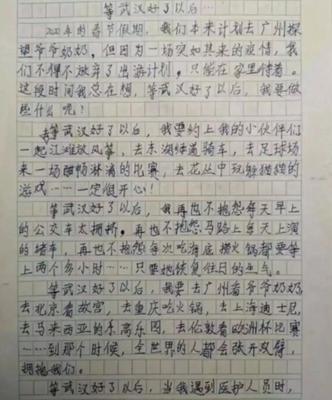 等武汉好了以后…
2020年的春节假期，我们本来计划去广州探
望爷爷奶奶。但因为一场突如其来的疫情，我
们不得不放弃了出游计划，只能在家里待着。
这段时间我总在想，等武汉好了以后，我要做
些什么呢！
等武汉好了以后，我要约上我的小伙伴们
一起江滩放风筝，去东湖绿道骑车，去足球场
来一场酣畅淋漓的比赛，去花丛中玩躲猫猫的
游戏……一定很开心！
等武汉好了以后，我再也不抱怨每天早上
的公交车太拥挤，再也不抱怨马路上每天上演
的堵车，再也不抱怨每次吃海底捞火锅都要等
上两个多小时……只要她恢复往日的生气。
等武汉好了以后，我要去广州看爷爷奶奶
去北京看故宫，去重庆吃火锅，去上海迪士尼，
去马来西亚的乐高乐园，去伦敦看欧洲杯比赛
……到那个时候，全世界的人都会张开双臂，
拥抱我们。
等武汉好了以后，当我遇到医护人员时，